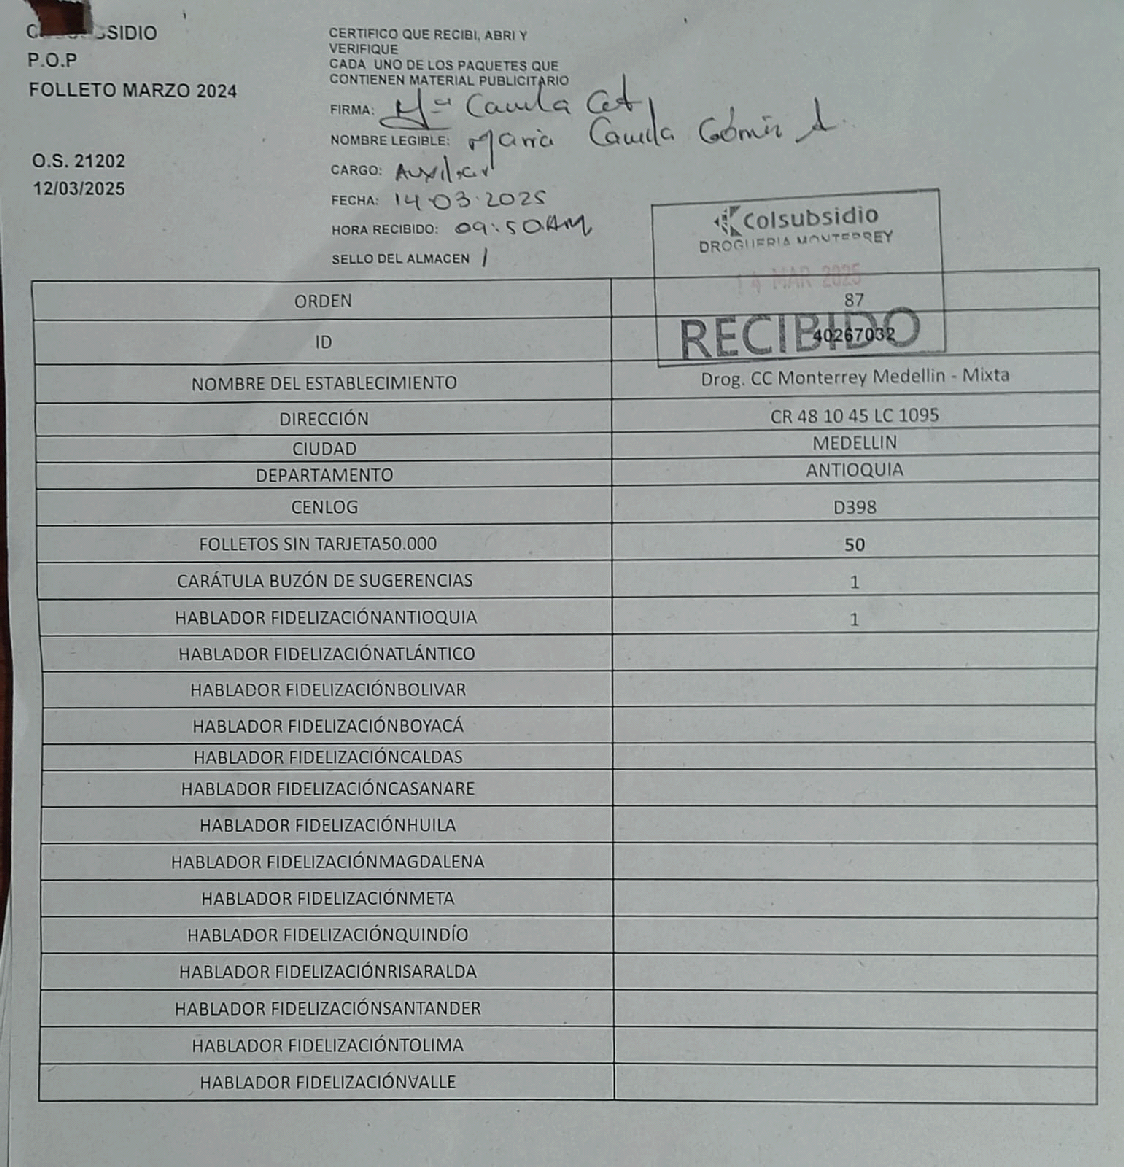 SIDIO
P.O.P
FOLLETO MARZO 2024
O.S. 21202
12/03/2025
CERTIFICO QUE RECIBI, ABRI Y
VERIFIQUE
CADA UNO DE LOS PAQUETES QUE
CONTIENEN MATERIAL PUBLICITARIO
FIRMA: Mª Camila
NOMBRE LEGIBLE: Maria Camila
CARGO: Auxiliar
FECHA: 14-03-2025
HORA RECIBIDO: 09:50AM
SELLO DEL ALMACEN
Colsubsidio
DROGUERIA MONTERREY
14 MAR 2025
RECIBIDO
ORDEN 87
ID 40267032
NOMBRE DEL ESTABLECIMIENTO Drog. CC Monterrey Medellin - Mixta
DIRECCIÓN CR 48 10 45 LC 1095
CIUDAD MEDELLIN
DEPARTAMENTO ANTIOQUIA
CENLOG D398
FOLLETOS SIN TARJETA50.000 50
CARÁTULA BUZÓN DE SUGERENCIAS 1
HABLADOR FIDELIZACIÓNANTIOQUIA 1
HABLADOR FIDELIZACIÓNATLÁNTICO
HABLADOR FIDELIZACIÓNBOLIVAR
HABLADOR FIDELIZACIÓNBOYACÁ
HABLADOR FIDELIZACIÓNCALDAS
HABLADOR FIDELIZACIÓNCASANARE
HABLADOR FIDELIZACIÓNHUILA
HABLADOR FIDELIZACIÓNMAGDALENA
HABLADOR FIDELIZACIÓNMETA
HABLADOR FIDELIZACIÓNQUINDÍO
HABLADOR FIDELIZACIÓNRISARALDA
HABLADOR FIDELIZACIÓNSANTANDER
HABLADOR FIDELIZACIÓNTOLIMA
HABLADOR FIDELIZACIÓNVALLE